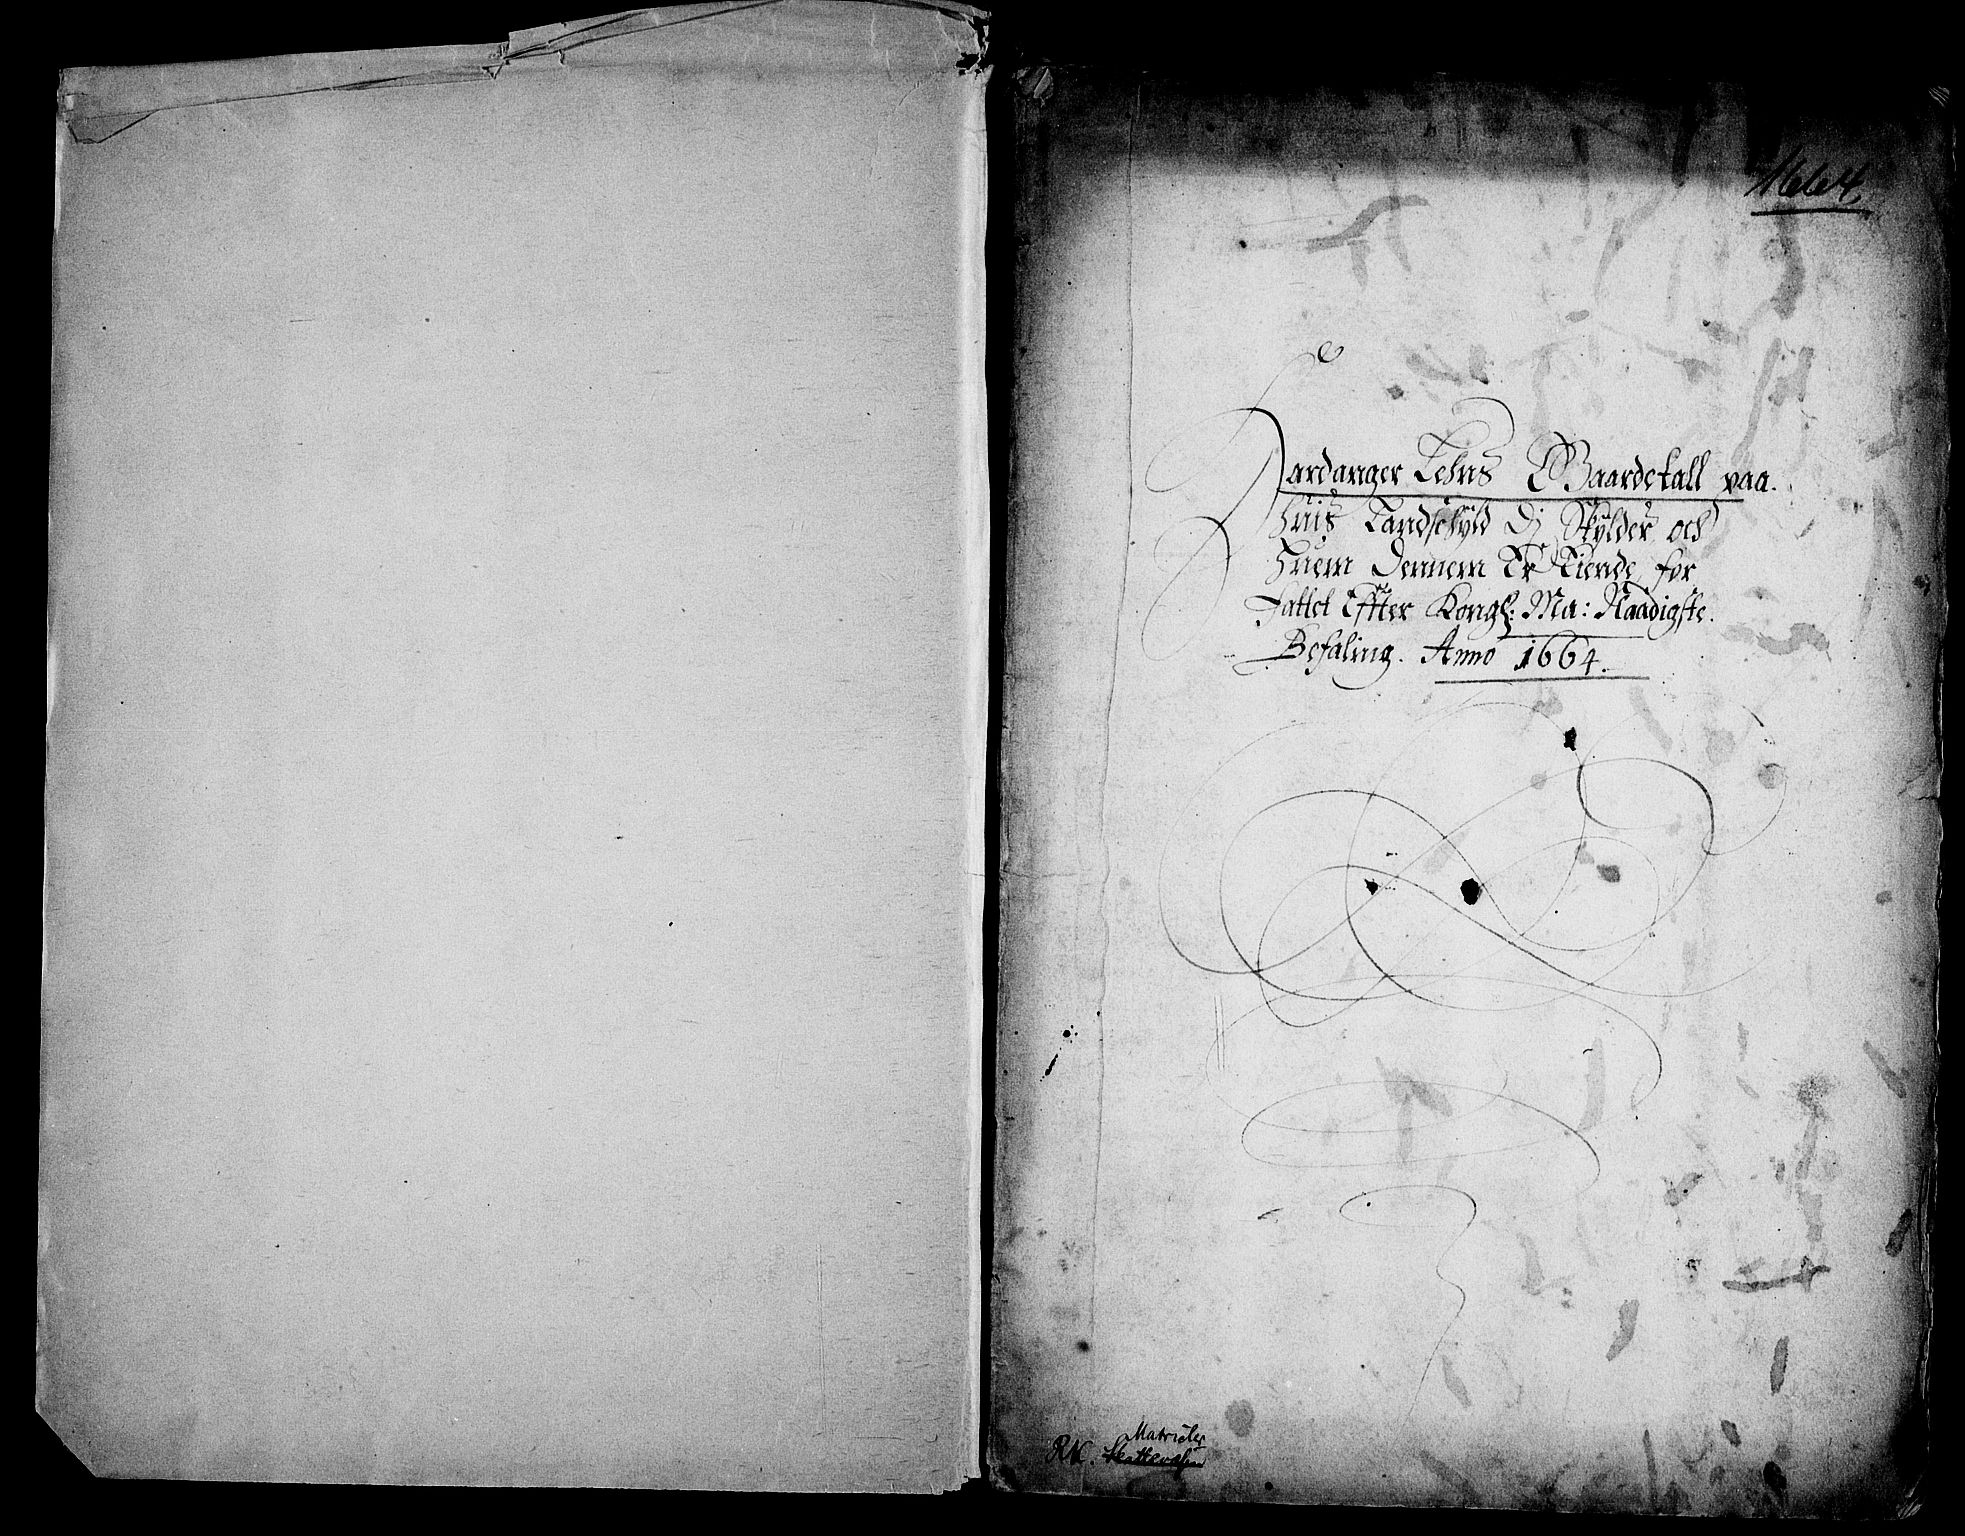 1664
Hardanger Lehns Gaardetall paa
huis Landschyld Dj Skylder och
huem Dennem Er Eiende, for
fattet Effter Kongl: Ma: Naadigste
Befaling. Anno 1664.
Matricler
RK.